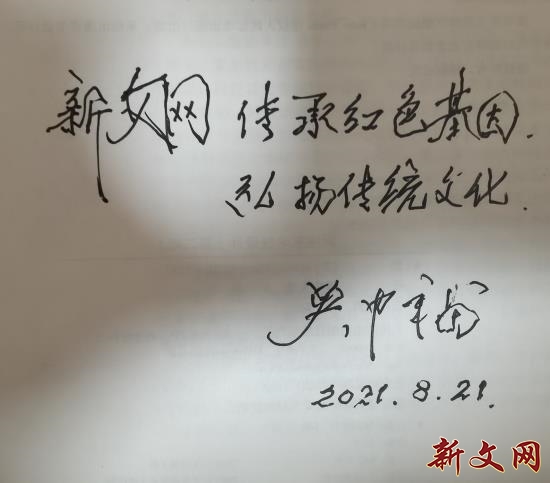 新文网 传承红色基因.
弘扬传统文化.
2021.8.21.
新文网